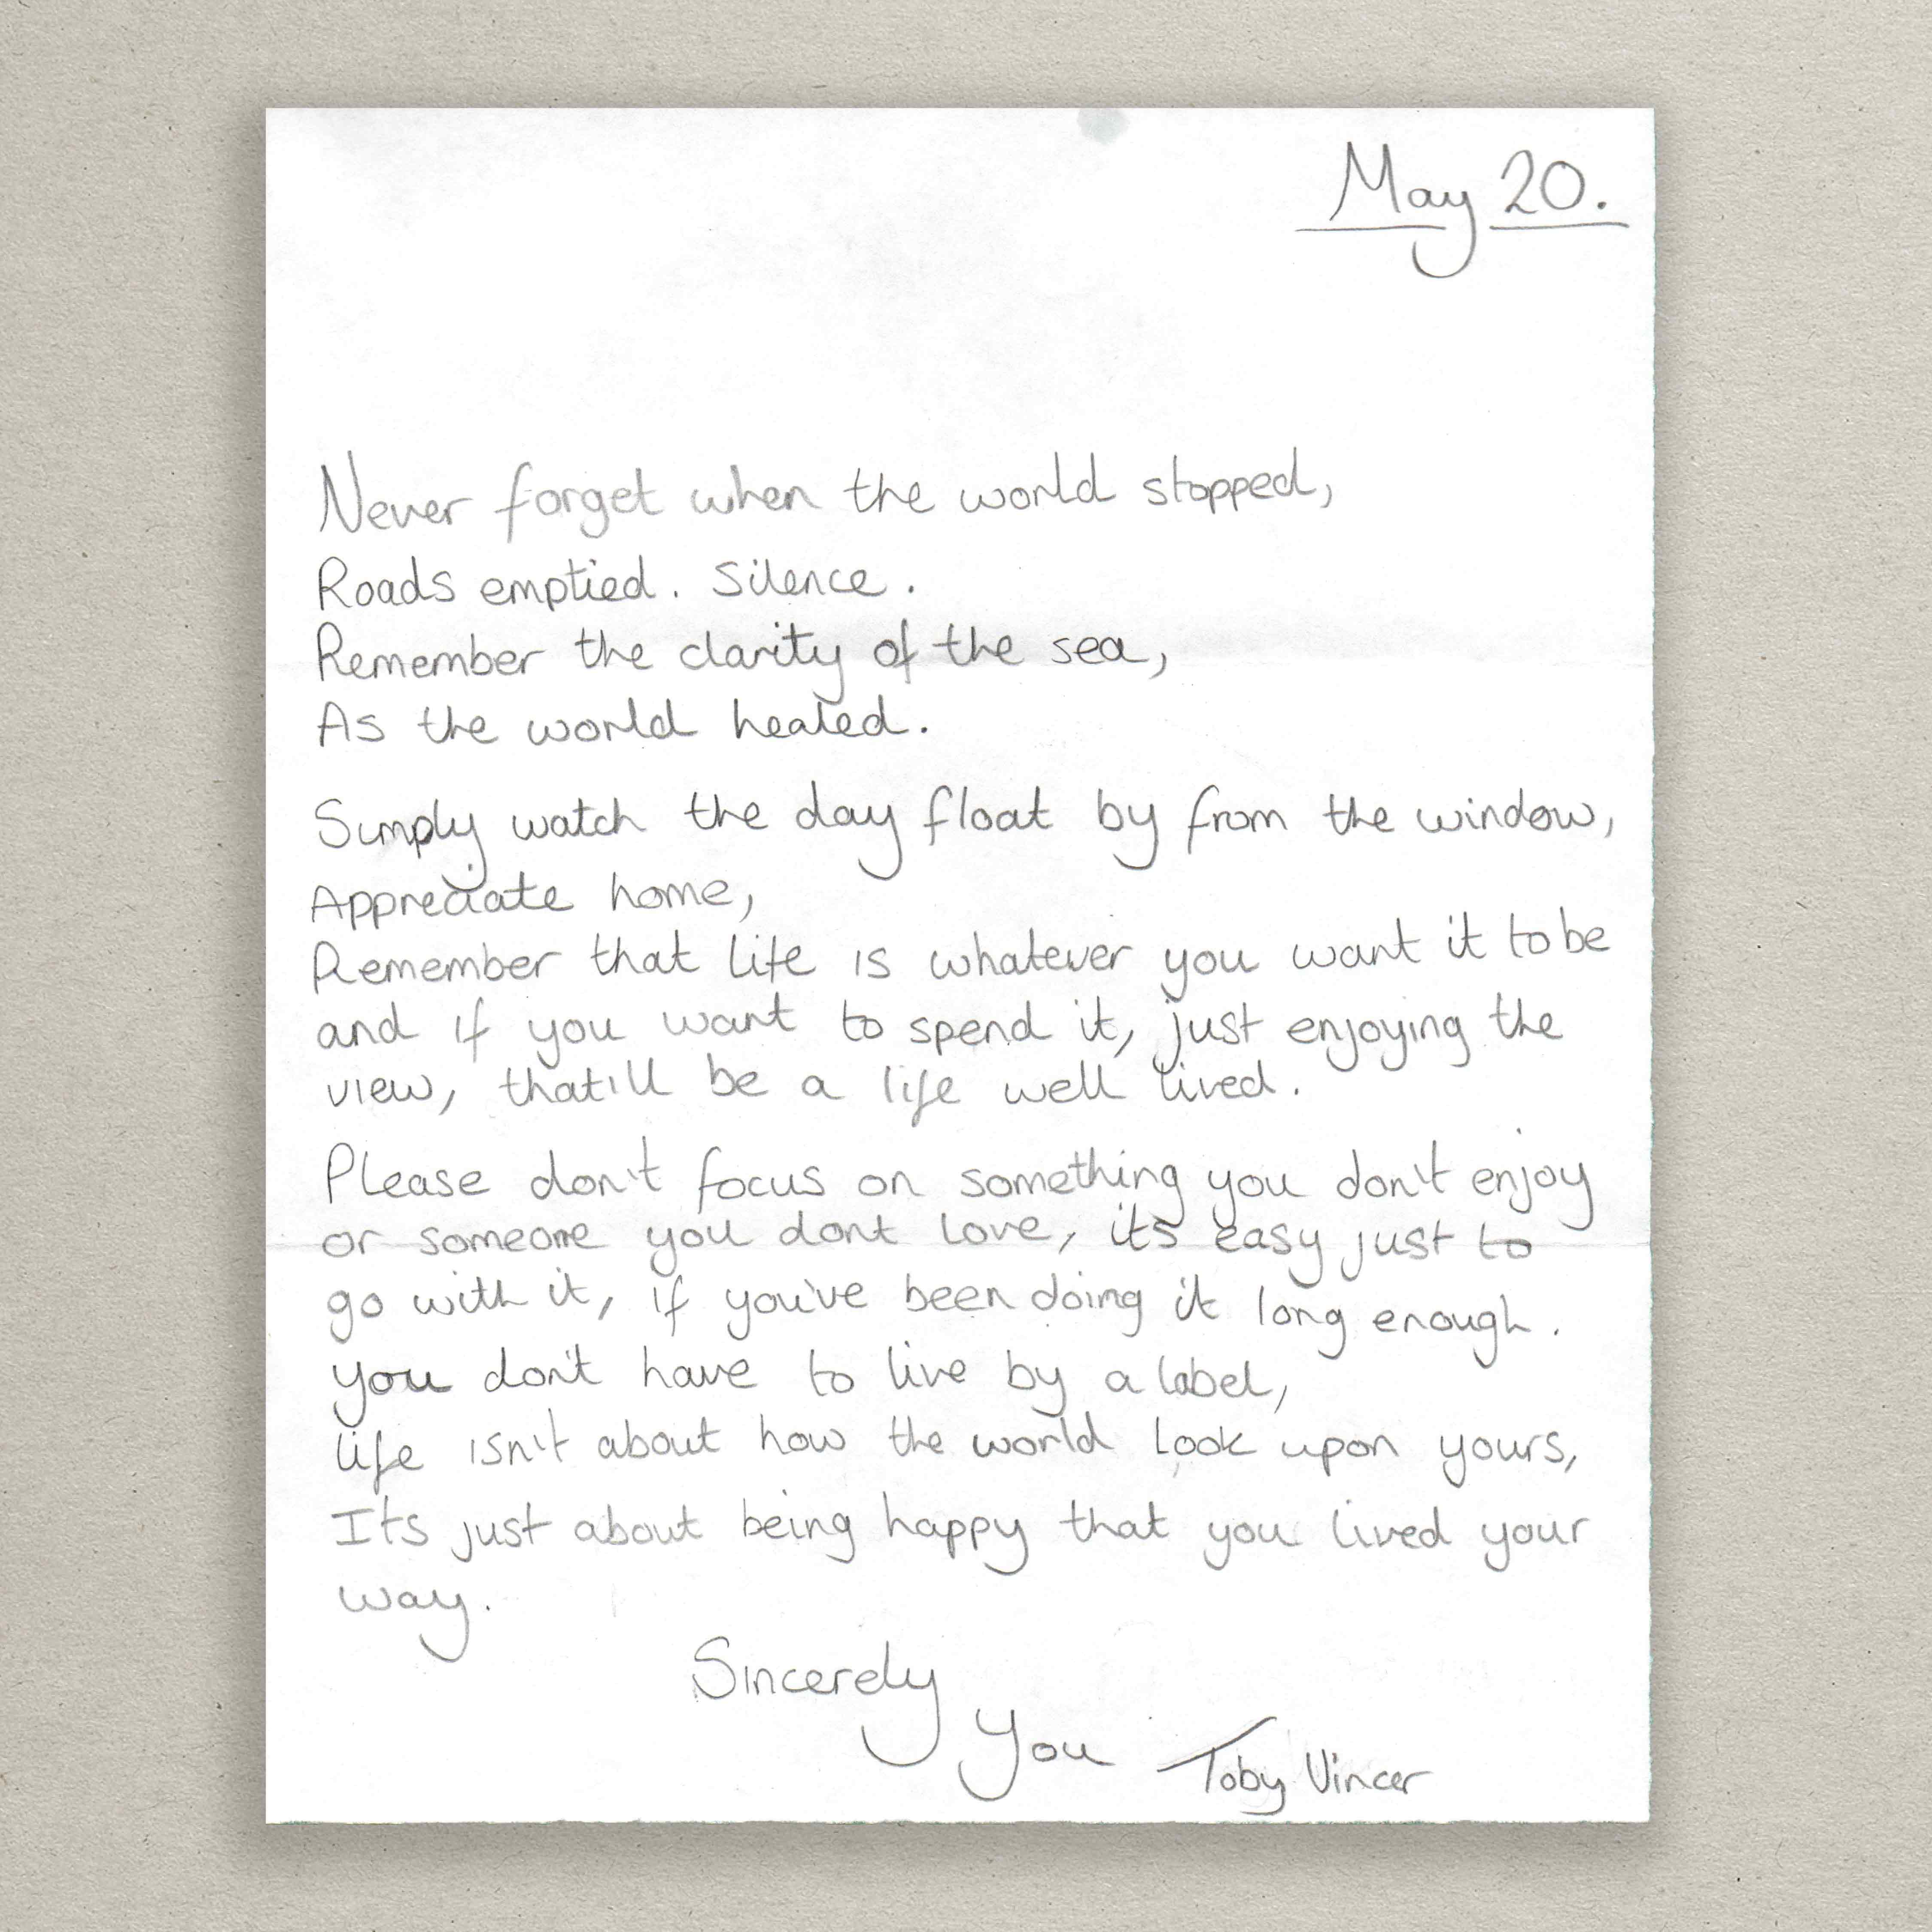 May 20.
Never forget when the world stopped,
Roads emptied. Silence.
Remember the clarity of the sea,
As the world healed.
Simply watch the day float by from the window,
Appreciate home,
Remember that life is whatever you want it to be
and if you want to spend it, just enjoying the
view, that'll be a life well lived.
Please don't focus on something you don't enjoy
or someone you dont love, its easy just to
go with it, if you've been doing it long enough.
You don't have to live by a label,
life isn't about how the world look upon yours,
Its just about being happy that you lived your
way.
Sincerely
You Toby Vincer